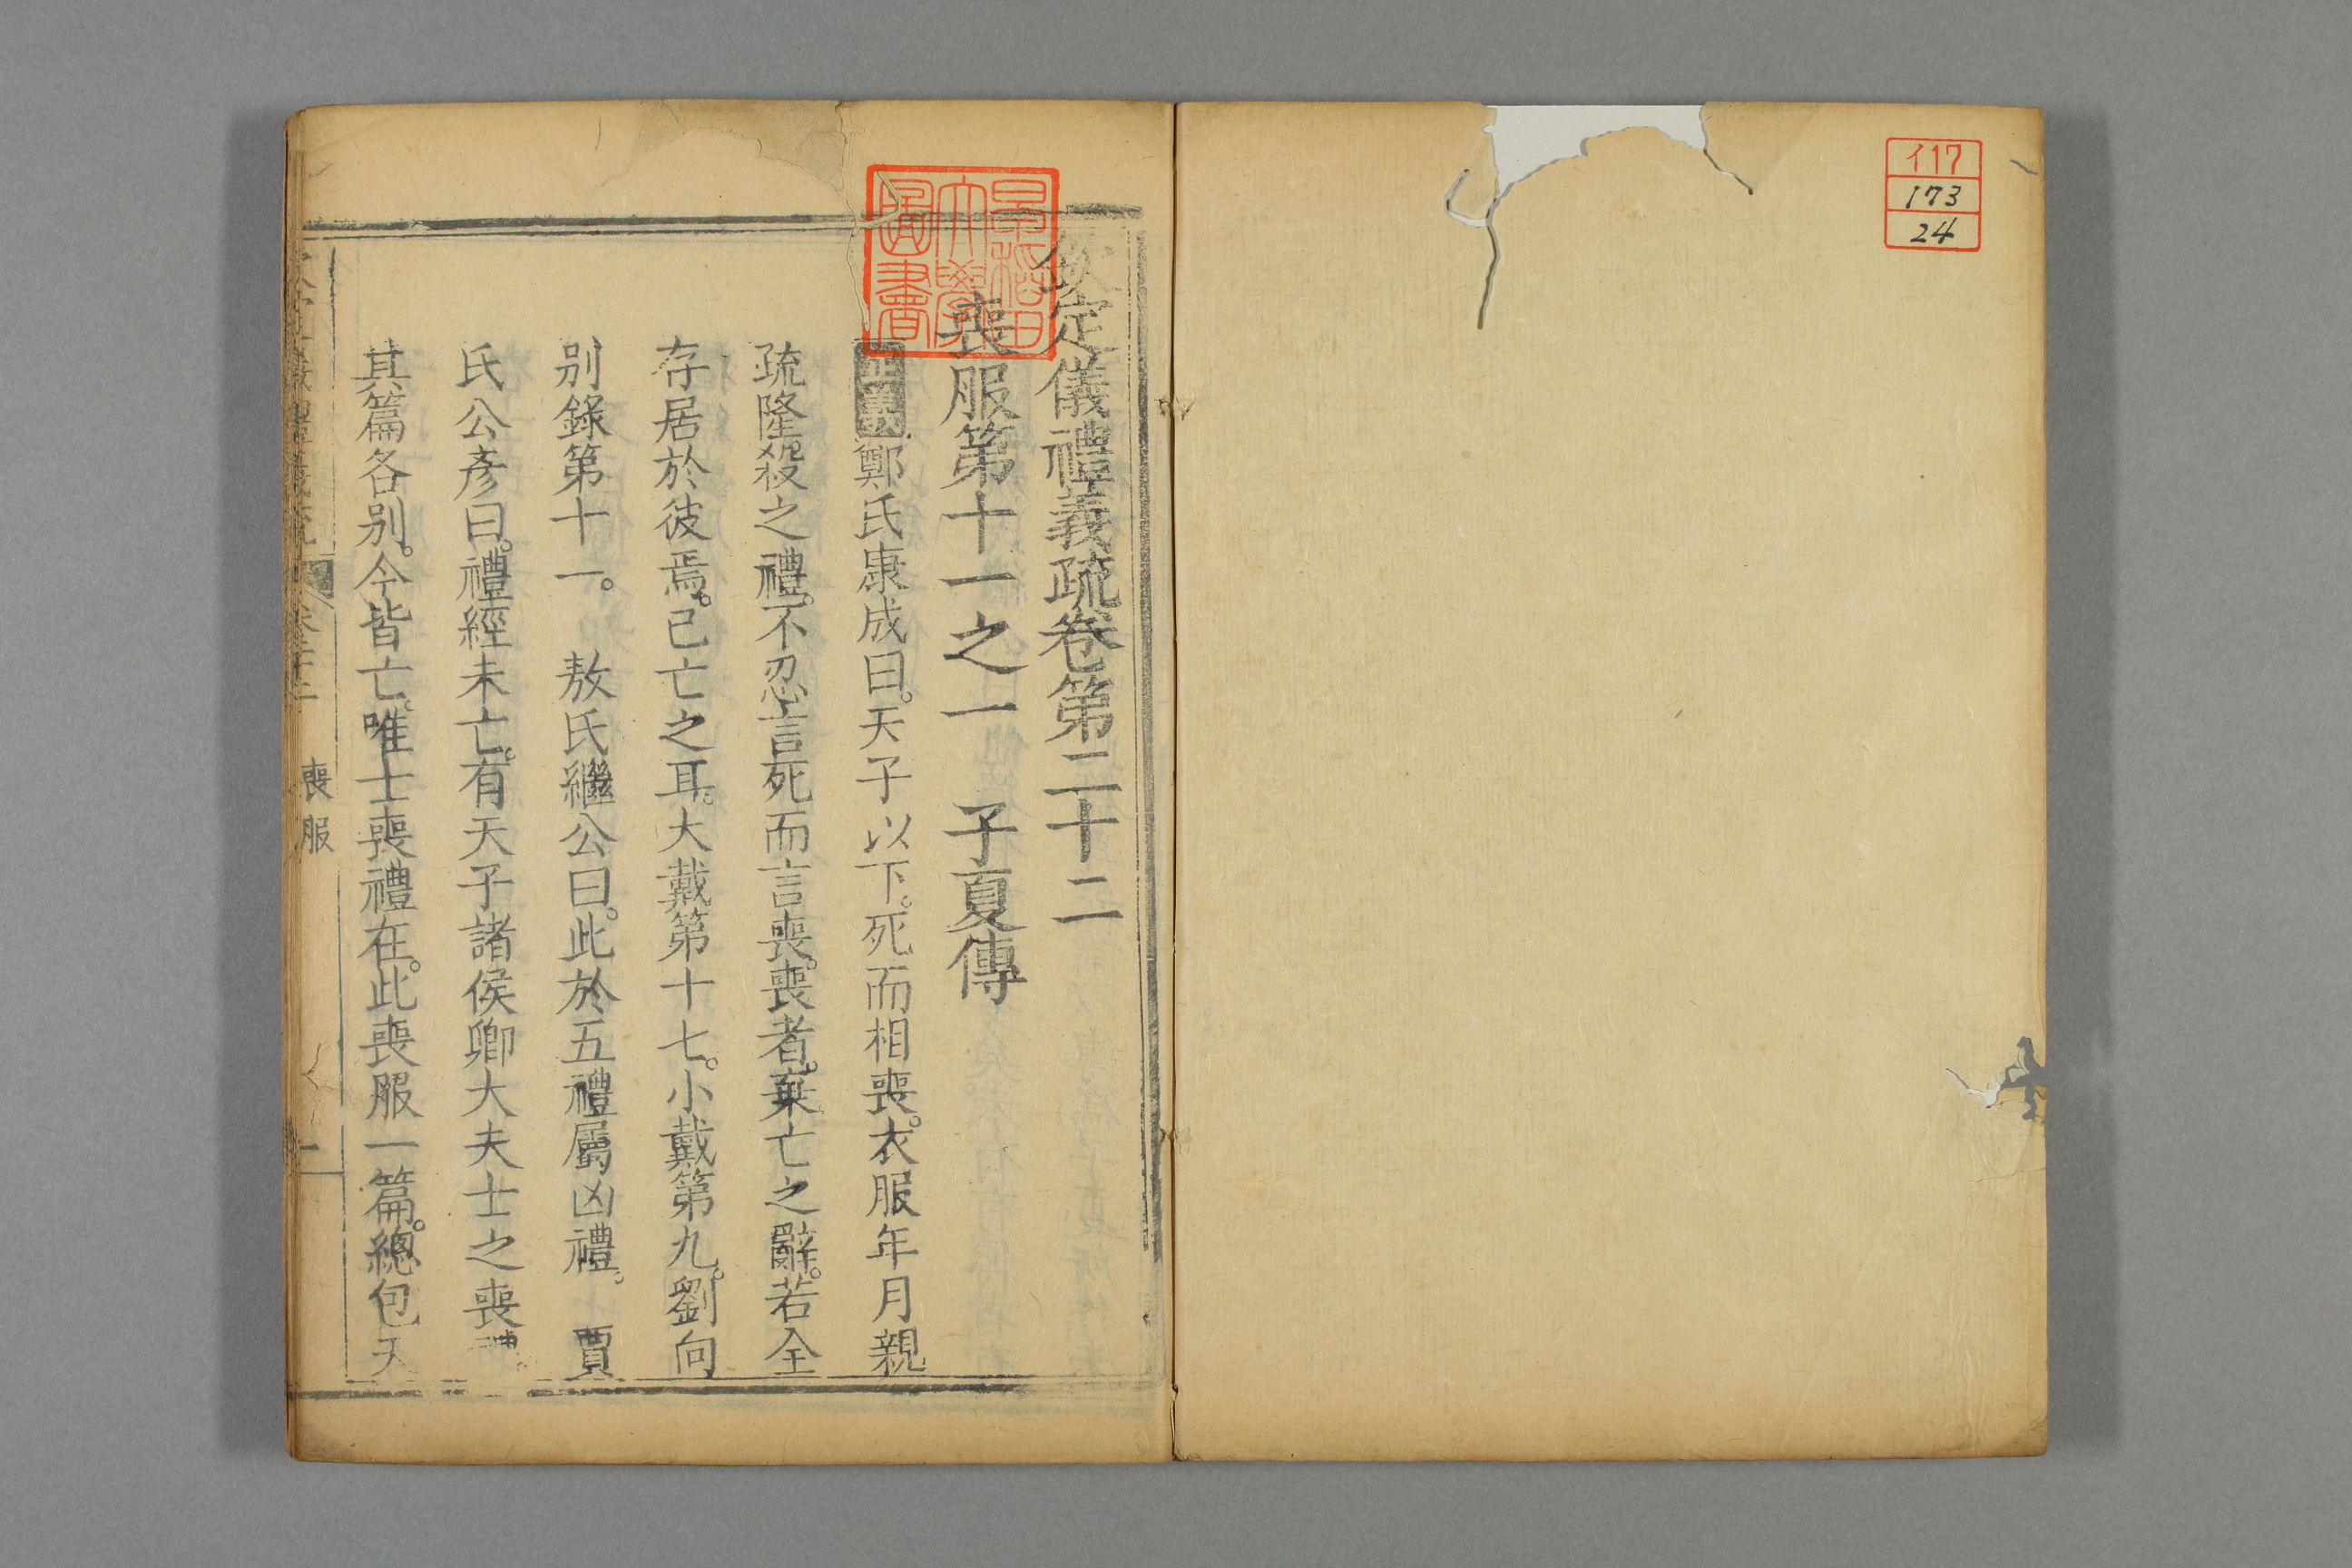 イ17
173
24
早稻田
大學
圖書
欽定儀禮義疏卷第二十二
喪服第十一之一 子夏傳
正義鄭氏康成曰。天子以下。死而相喪。衣服年月親
疏隆殺之禮。不忍言死而言喪。喪者。棄亡之辭。若全
存居於彼焉。已亡之耳。大戴第十七。小戴第九。劉向
別錄第十一。 敖氏繼公曰。此於五禮屬凶禮。 賈
氏公彥曰。禮經未亡。有天子諸侯卿大夫士之喪禮。
其篇各別。今皆亡。唯士喪禮在。此喪服一篇。總包天
喪服